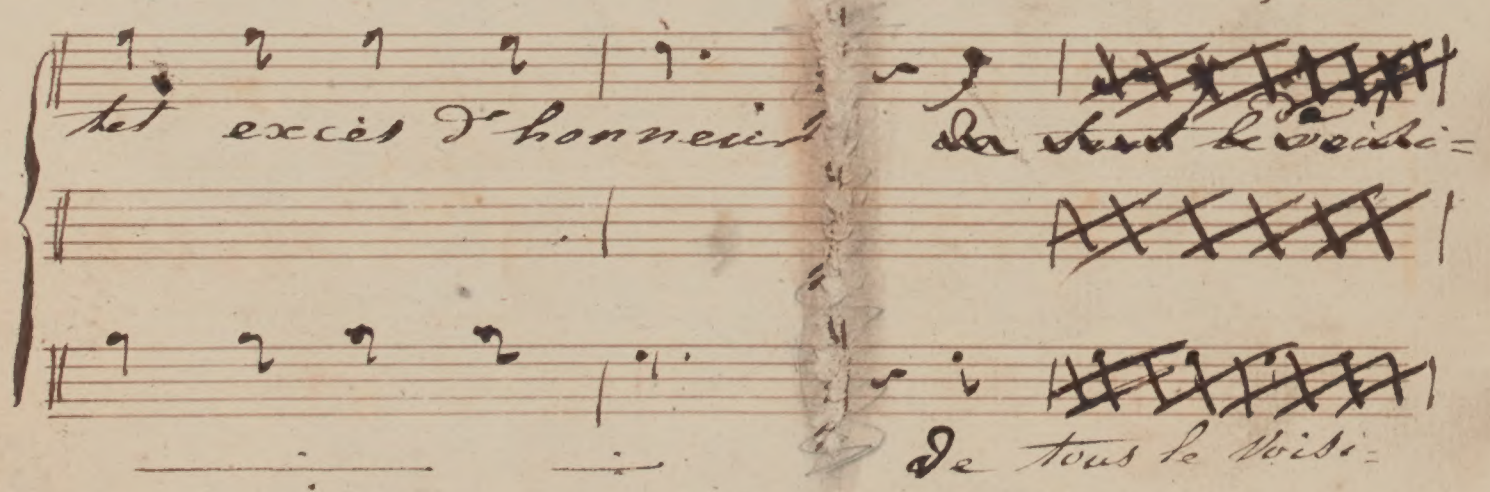 tes excès d'honneurs de tout le voisi=
De tous le Voisi=